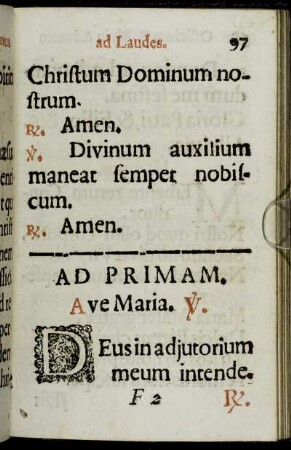 ad Laudes. 97
Chriſtum Dominum no-
ſtrum.
℟. Amen.
℣. Divinum auxilium
maneat ſempeꞇ nobiſ-
cum.
℟. Amen.
AD PRIMAM.
Ave Maria. ℣.
DEus in adjutorium
meum intende.
F 2 ℟.